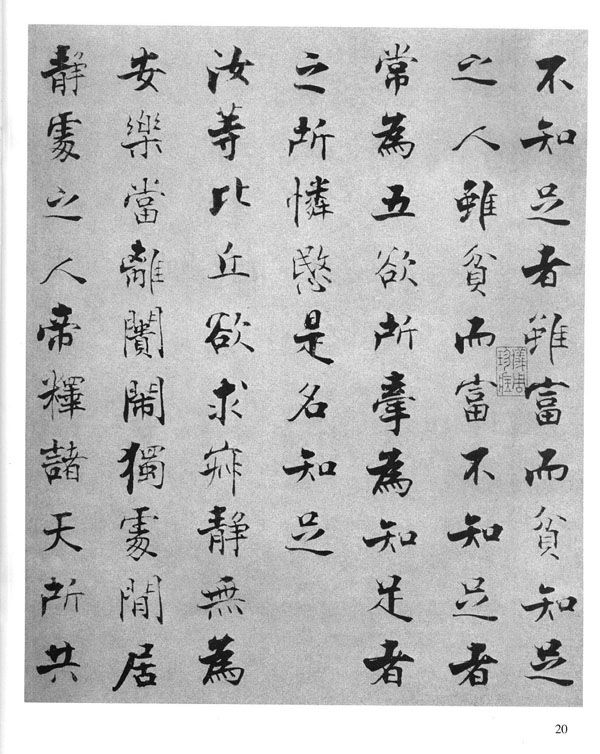 不知足者雖富而貧知足
之人雖貧而富不知足者
常為五欲所牽為知足者
之所憐愍是名知足
汝等比丘欲求寂靜無為
安樂當離闠閙獨處閒居
靜處之人帝釋諸天所共
20